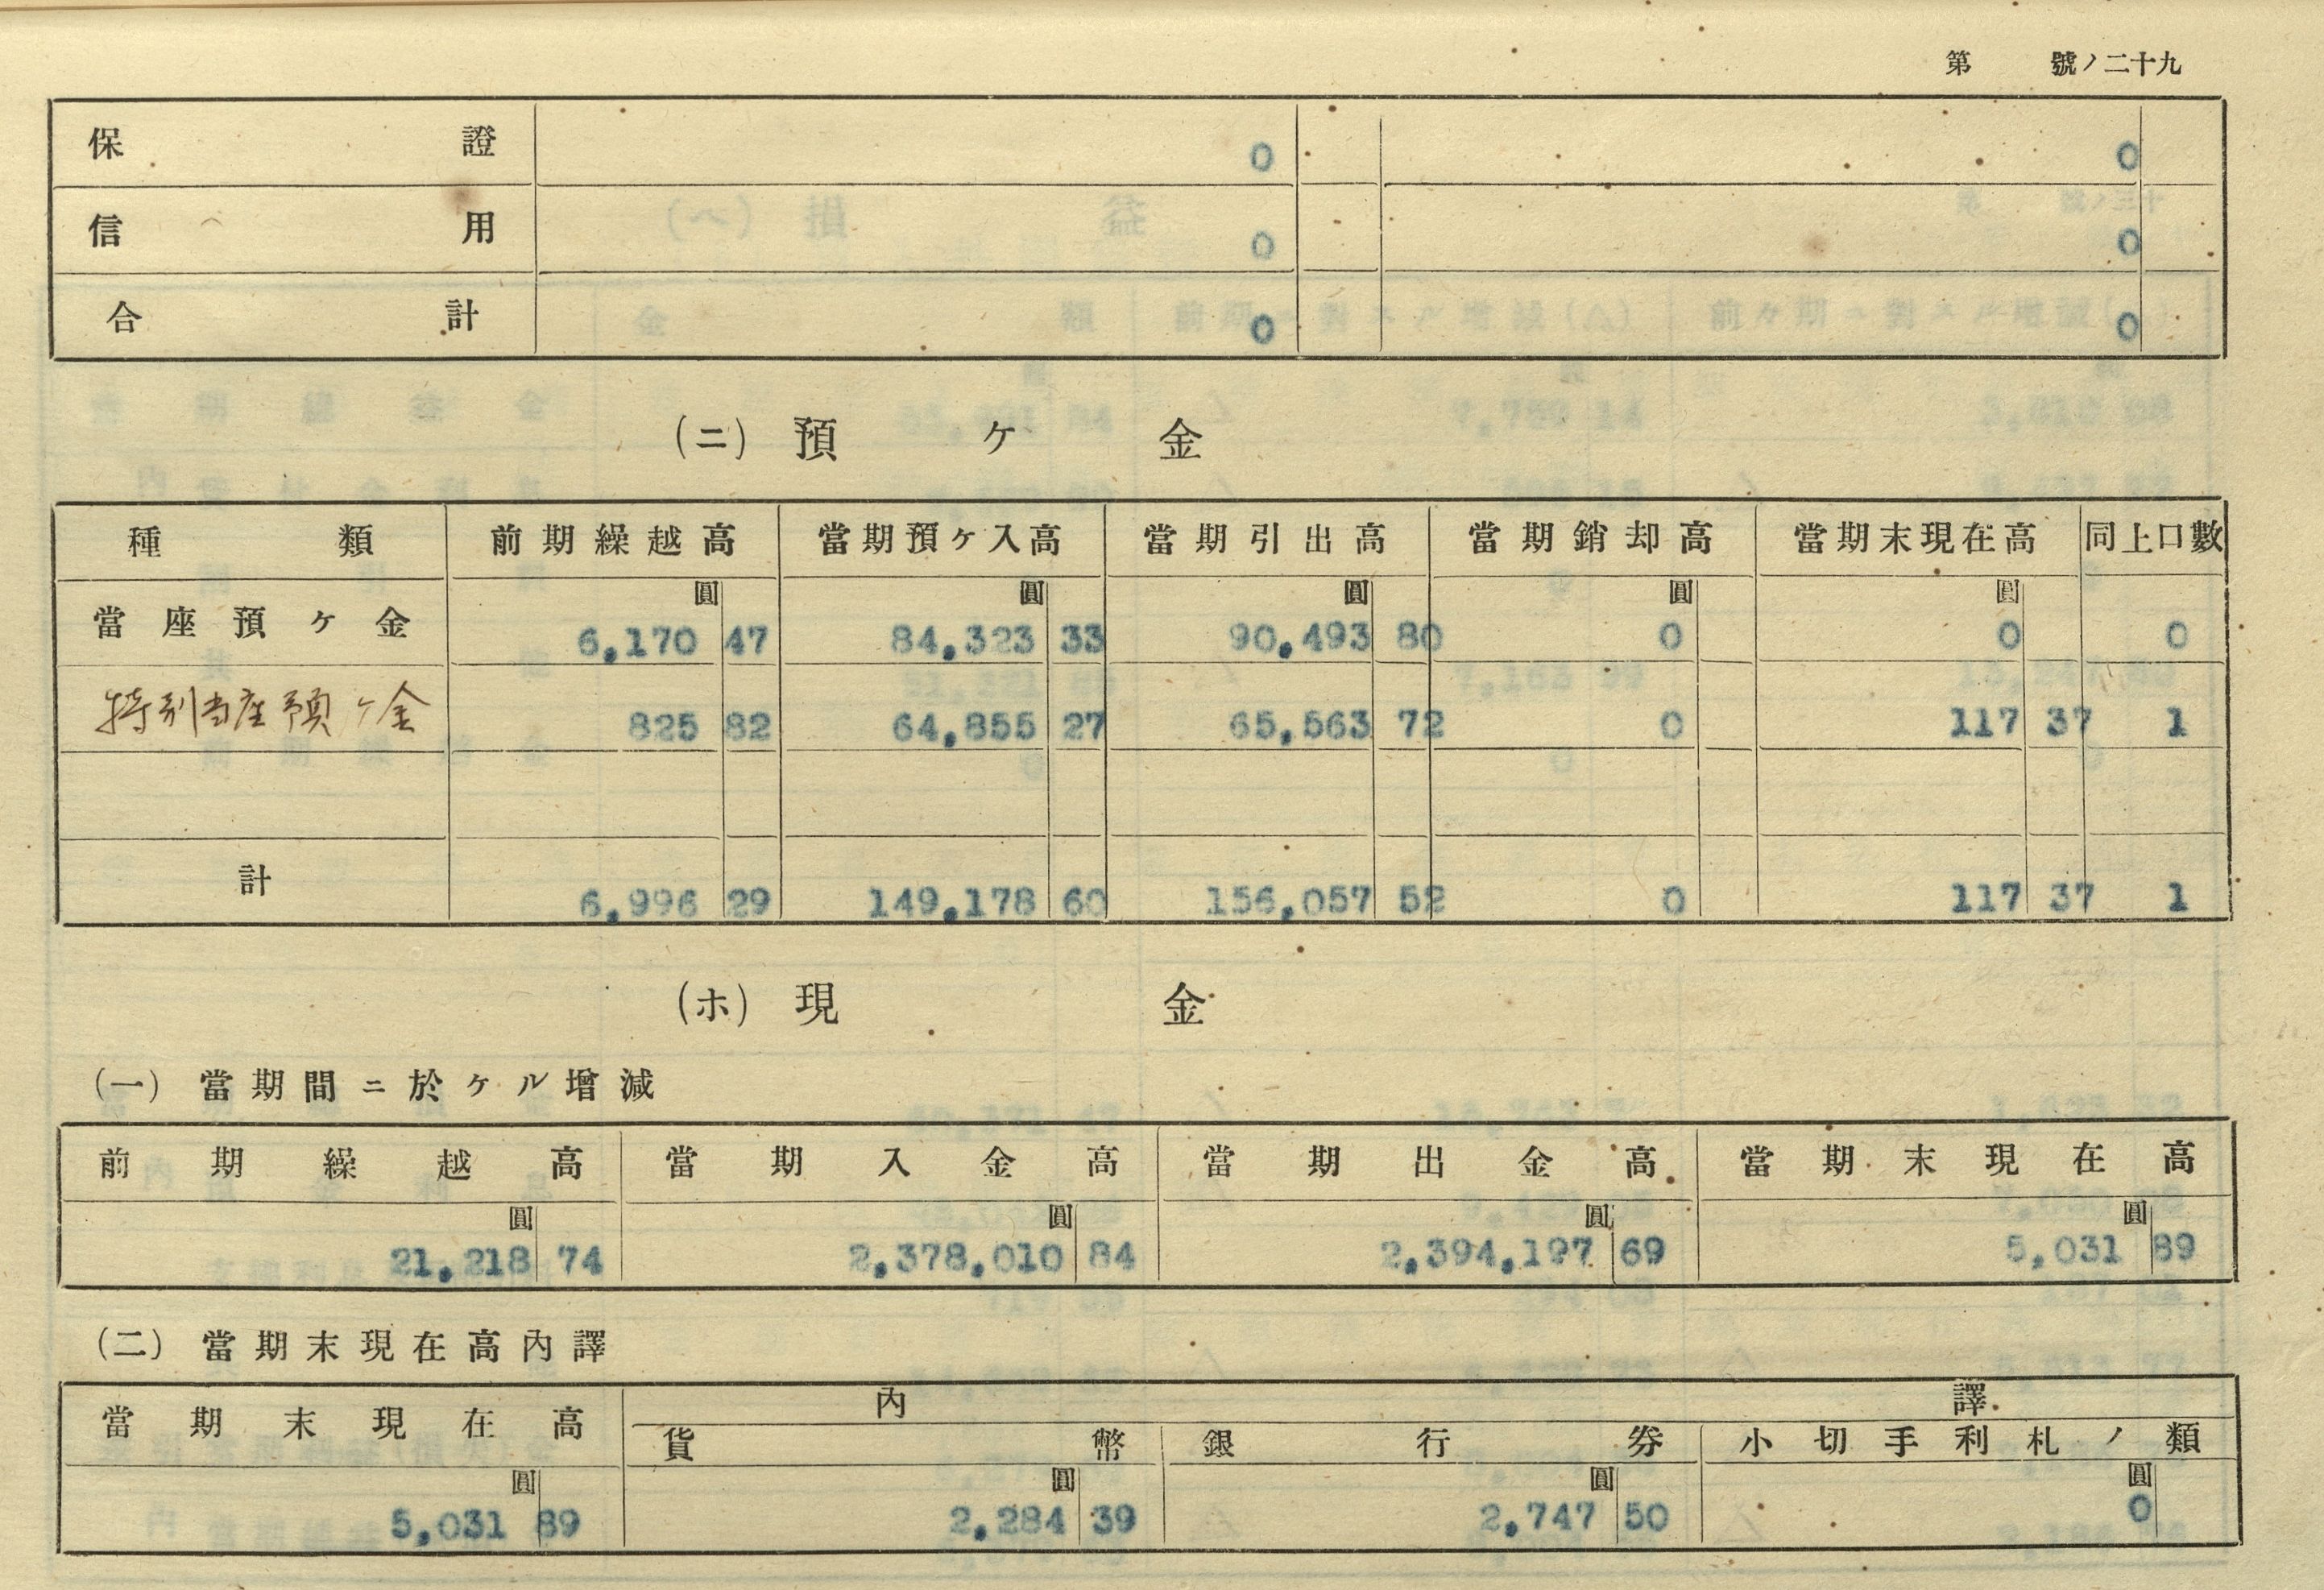 第 號ノ二十九
保證 0 0
信用 0 0
合計 0 0
(ニ) 預ケ金
種類 前期繰越高 當期預ケ入高 當期引出高 當期銷却高 當期末現在高 同上口數
圓 圓 圓 圓 圓
當座預ケ金 6,170 47 84,323 33 90,493 80 0 0 0
特別当座預ケ金 825 82 64,855 27 65,563 72 0 117 37 1
計 6,996 29 149,178 60 156,057 52 0 117 37 1
(ホ) 現金
(一) 當期間ニ於ケル增減
前期繰越高 當期入金高 當期出金高 當期末現在高
圓 圓 圓 圓
21,218 74 2,378,010 84 2,394,197 69 5,031 89
(二) 當期末現在高內譯
當期末現在高 內譯
貨幣 銀行券 小切手利札ノ類
圓 圓 圓 圓
5,031 89 2,284 39 2,747 50 0